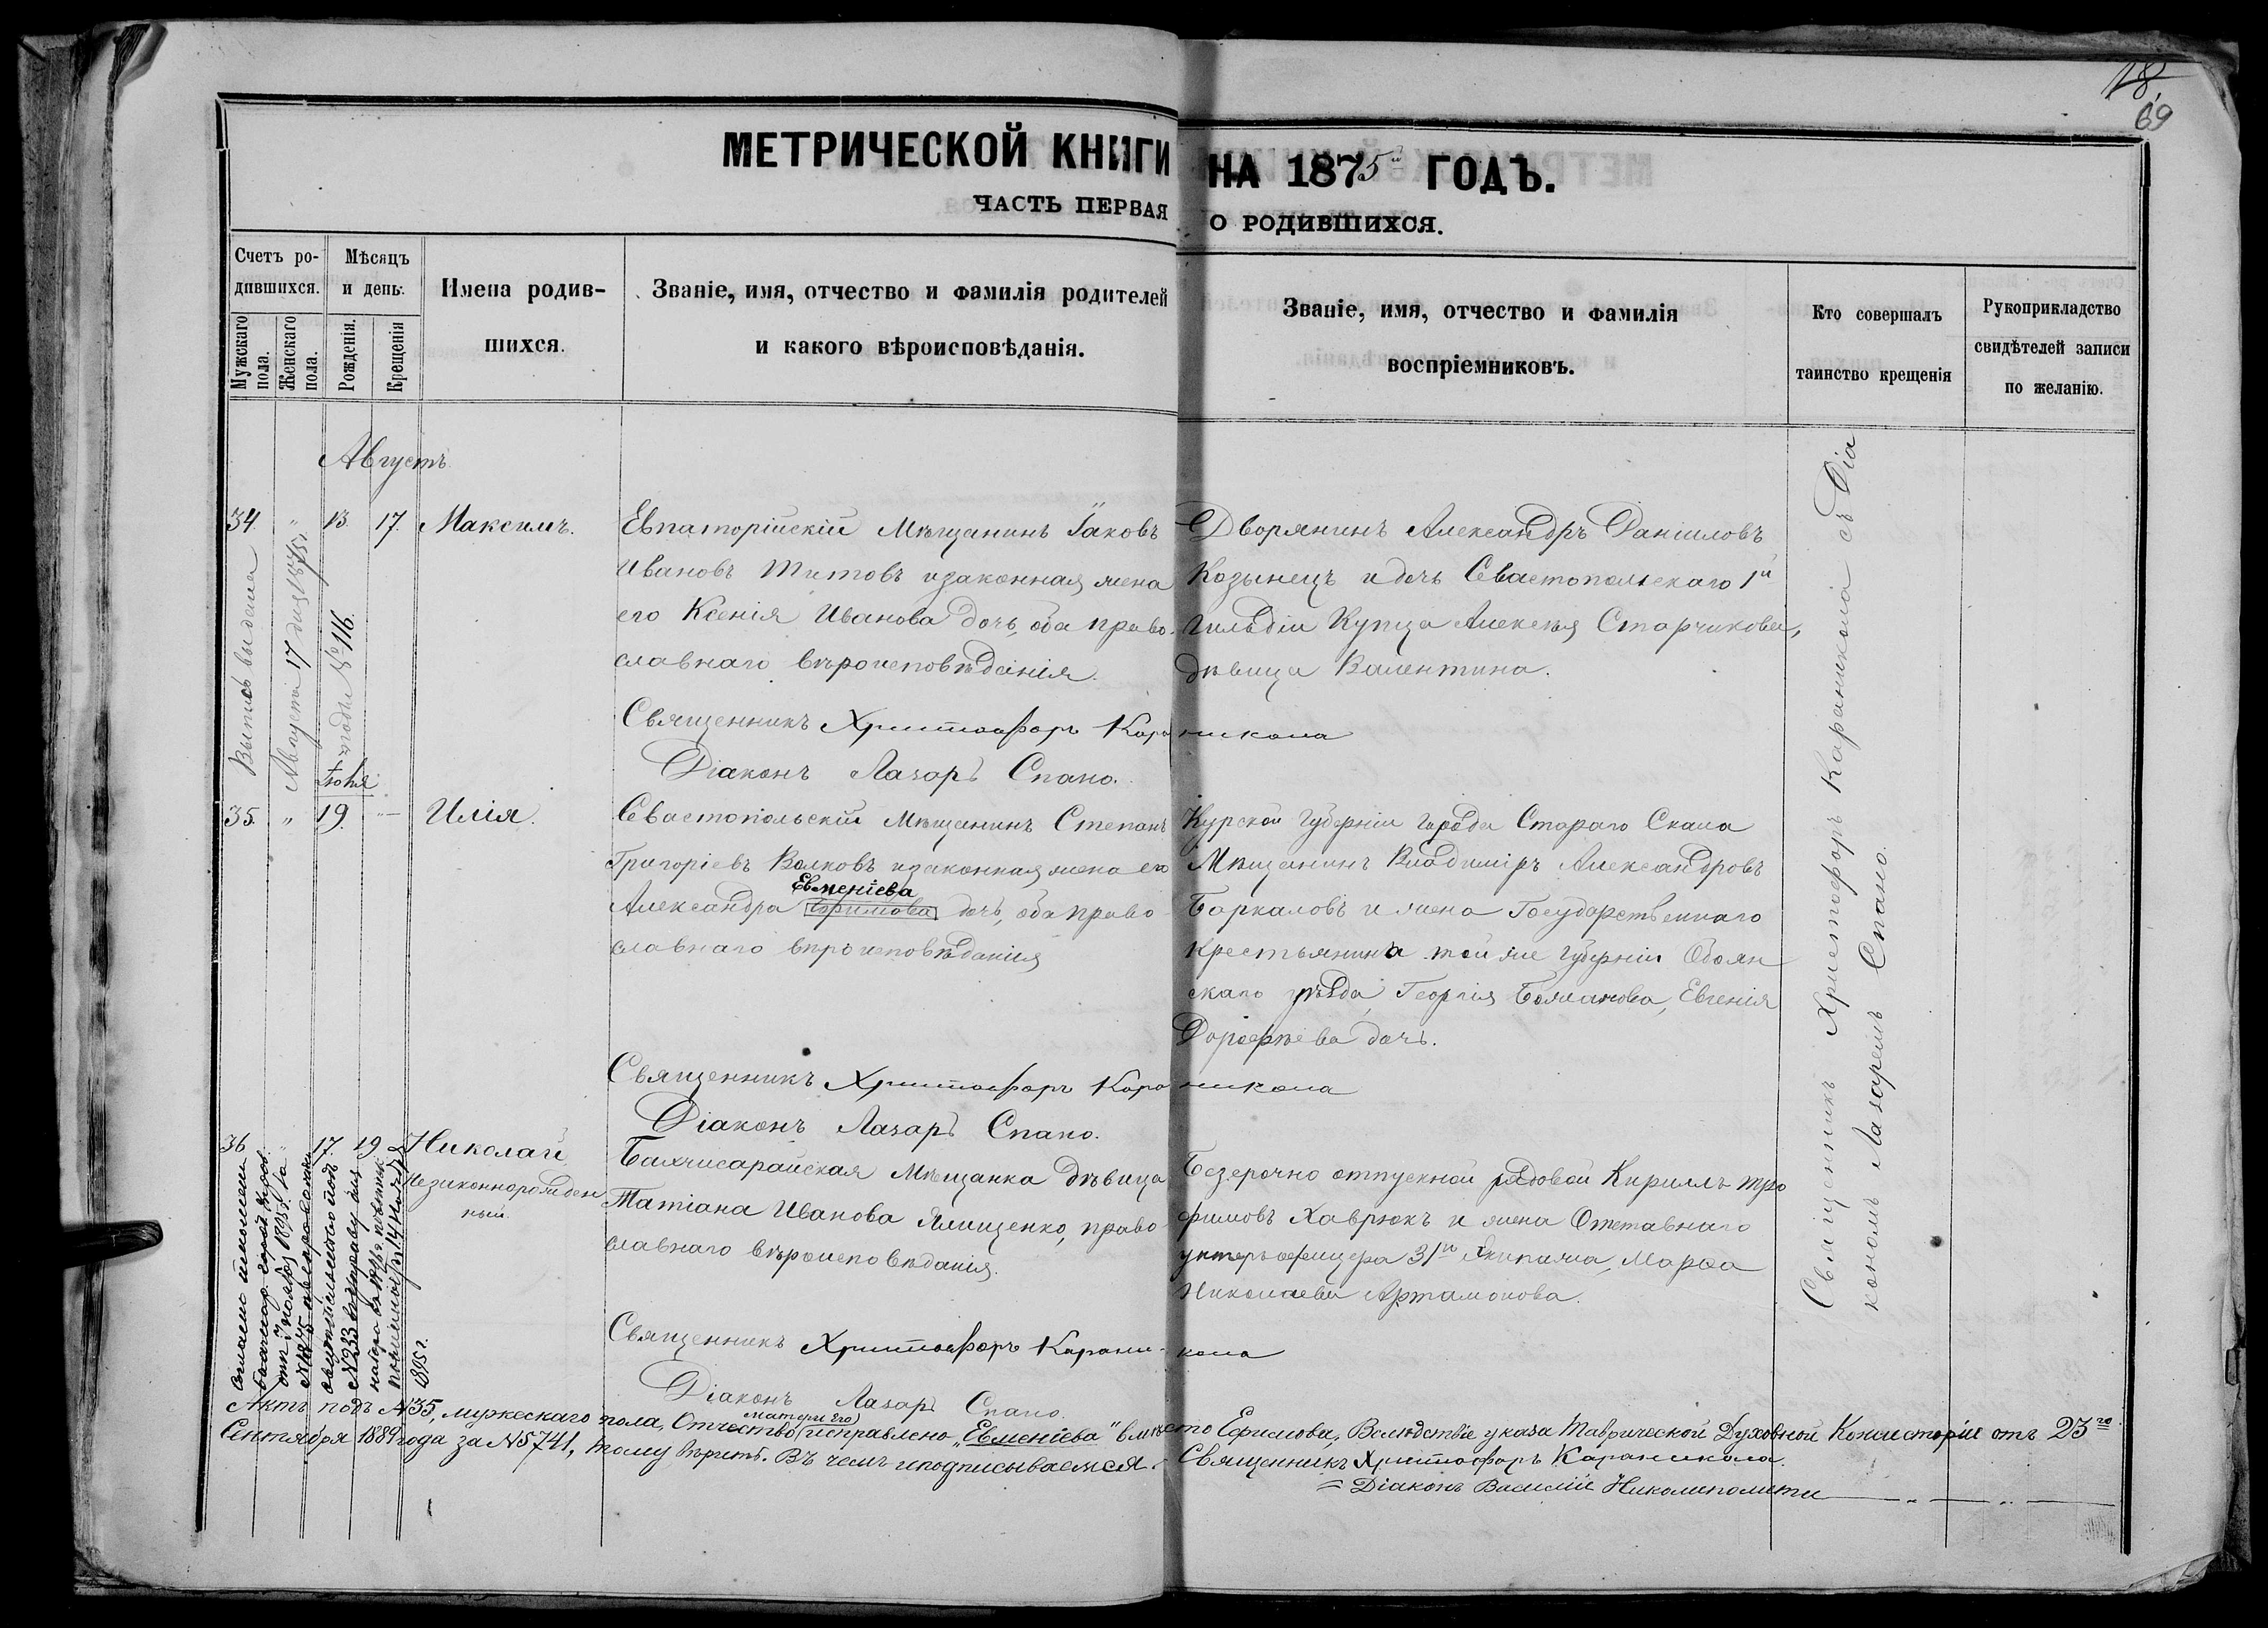 18
69
МЕТРИЧЕСКОЙ КНИГИ НА 1875й ГОДЪ.
ЧАСТЬ ПЕРВАЯ О РОДИВШИХСЯ.
Счетъ ро-
дившихся.
Мужскаго пола.
Женскаго пола.
Мѣсяцъ
и день.
Рожденія.
Крещенія
Имена родив-
шихся.
Званіе, имя, отчество и фамилія родителей
и какого вѣроисповѣданія.
Званіе, имя, отчество и фамилія
воспріемниковъ.
Кто совершалъ
таинство крещенія
Рукоприкладство
свидѣтелей записи
по желанію.
Августъ
34. " 13. 17. Максимъ.
Евпаторійскій Мѣщанинъ Іаковъ
Ивановъ Титовъ и законная жена
его Ксенія Иванова дочь, оба право-
славнаго вѣроисповѣданія.
Дворянинъ Александръ Даніиловъ
Козынецъ и дочь Севастопольскаго 1й
Гильдіи Купца Алексѣя Старчикова,
дѣвица Валентина.
Священникъ Христофоръ Караникола
Діаконъ Лазарь Спано.
Выпись выдана
Августа 17 дня 1875 г.
№ 116.
Іюня
35. " 19. " Илія.
Севастопольскій Мѣщанинъ Степанъ
Григоріевъ Волковъ и законная жена его
Евменіева
Александра Ефимова дочь, оба право-
славнаго вѣроисповѣданія
Курской Губерніи города Стараго Скала
Мѣщанинъ Владиміръ Александровъ
Баркаловъ и жена Государственнаго
крестьянина той же Губерніи Обоян
скаго уѣзда, Георгія Божанова, Евгенія
Дорофѣева дочь.
Священникъ Христофоръ Караникола
Діаконъ Лазарь Спано.
36 " 17. 19 Николай
Незаконнорожден
ный.
Бахчисарайская Мѣщанка дѣвица
Татіана Иванова Лищенко, право-
славнаго вѣроисповѣданія.
Безсрочно отпускной рядовой Кириллъ Тро
фимовъ Хаврюкъ и жена Отставнаго
унтеръ офицера 31го Экипажа, Марѳа
Николаева Артамонова.
Священникъ Христофоръ Карани-кола
Діаконъ Лазарь Спано.
Священникъ Христофоръ Караникола съ Діа
кономъ Лазаремъ Спано.
1895 г.
Актъ подъ №35, мужескаго пола, Отчество матери его исправлено „Евменіева" вмѣсто Ефимова, Вслѣдствіе указа Таврической Духовной Консисторіи отъ 23го
Сентября 1889 года за №5741, тому вѣрить. Въ чемъ и подписываемся. Священникъ Христофоръ Караникола.
Діаконъ Василій Николиполити